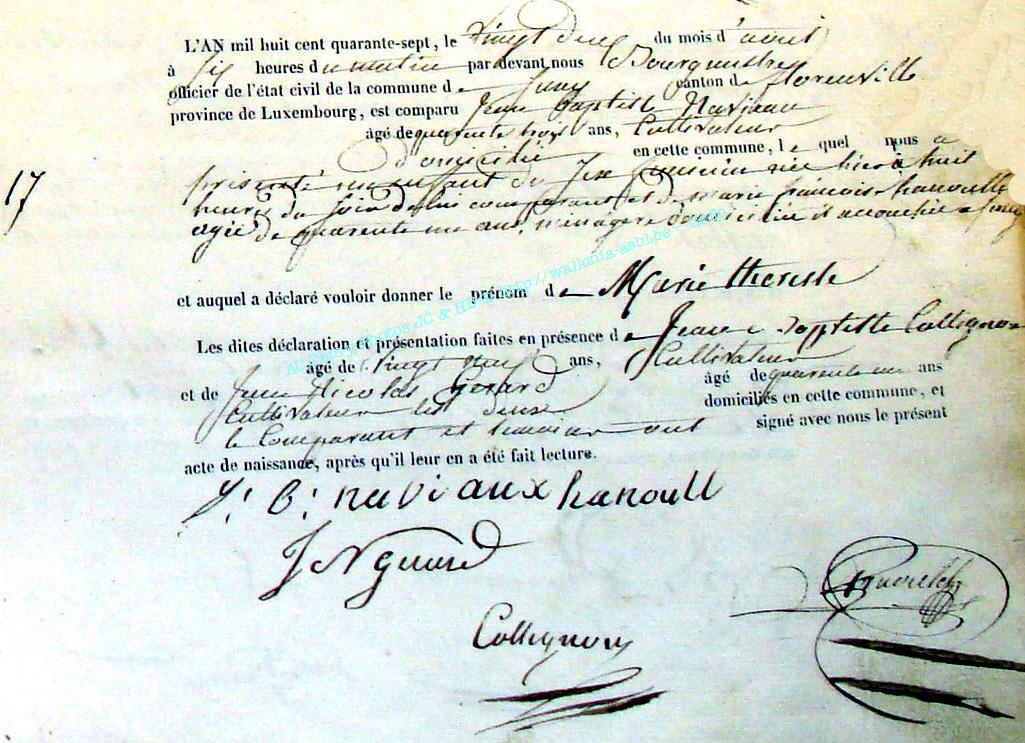 L'AN mil huit cent quarante-sept, le vingt deux du mois d'avril
à six heures du matin par devant nous Bourguemestre
officier de l'état civil de la commune de Jzel canton de florenville
province de Luxembourg, est comparu Jean Baptiste Naviaux
âgé de quarante trois ans, Cultivateur
Domicilié en cette commune, le quel nous a
17
présenté un enfant du sexe feminin née hier à huit
heures du soir de lui comparant et de marie françoise hanoulle
agée de quarante un ans ménagere domiciliée et accouchée a
et auquel a déclaré vouloir donner le prénom de Marie therese
Les dites déclaration et présentation faites en présence de Jean Baptiste Collignon
âgé de vingt neuf ans, Cultivateur
et de Jean Nicolas Gerard âgé de quarante un ans
Cultivateur les deux domiciliés en cette commune, et
le Comparant et temoins ont signé avec nous le présent
acte de naissance, après qu'il leur en a été fait lecture.
J. B. naviaux hanoull
J N gerard
Collignon
photos JC & http//wallonia-asbl.be